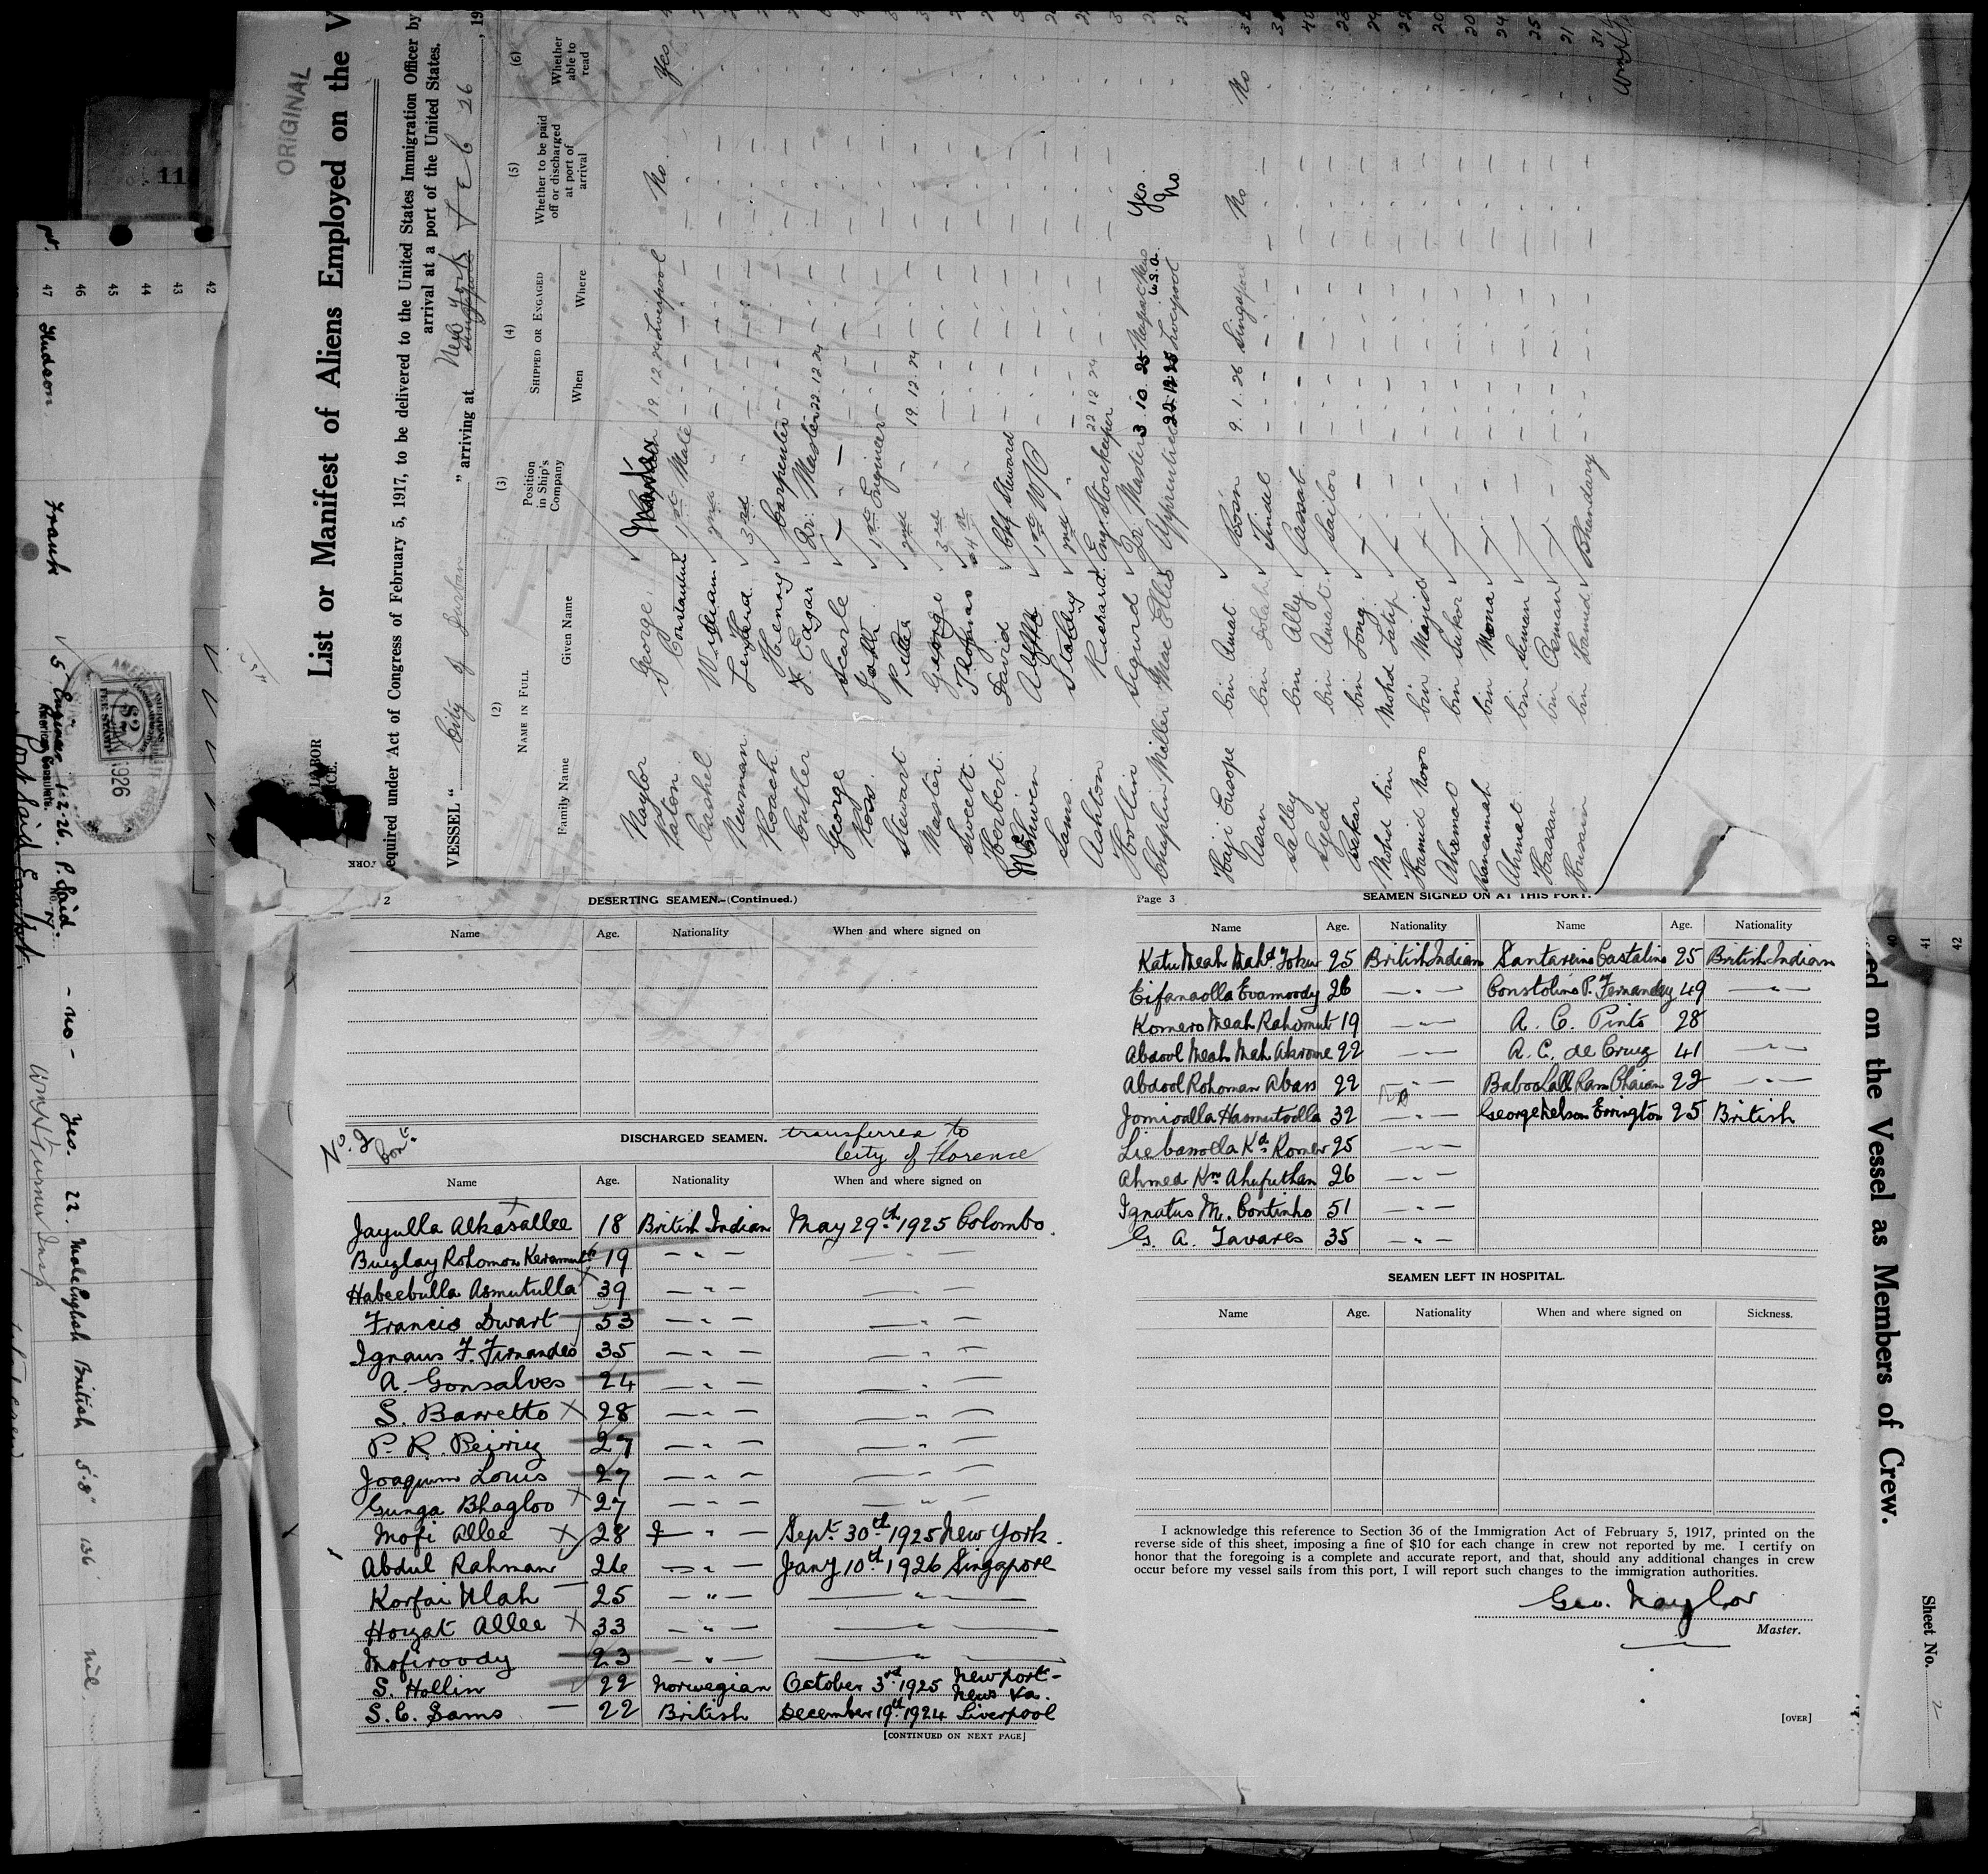 ORIGINAL
List or Manifest of Aliens Employed on the V
equired under Act of Congress of February 5, 1917, to be delivered to the United States Immigration Officer by
arrival at a port of the United States.
VESSEL " City of Durban " arriving at New York Feb 26 , 19
(2) (3) (4) (5) (6)
NAME IN FULL
Position in Ship's Company
SHIPPED OR ENGAGED
Whether to be paid off or discharged at port of arrival
Whether able to read
Family Name Given Name When Where
Naylor George 19.12.24 Liverpool No. Yes
Paton Constantine 1st Mate
Cashel William 2nd "
Newman 3rd "
Roach Henry Carpenter
Cutler J. Edgar Qr. Master 22.12.24
George Searle
Ross 1st Engineer
Stewart Peter 2nd " 19 12 24
Master George 3rd "
Sweet Thomas 4th "
Herbert David Chf Steward
McEhwen 1st W/O
Sams Stanley 2nd "
Ashton Richard Eng. Storekeeper 22 12 24
Hortlin Sigurd Qr Master 3 10 25 Newport News U.S.A. Yes.
Chaplin Miller Mac Elles Apprentice 22.12.25 Liverpool No
Haji Eusope bin Amat Bosn 9.1.26 Singapore No No
Assan bin Tindal
Salley bin Ally Cassab
Syed bin Amat Sailor
Bakar bin Long
Mohd bin Mohd Latip
Hamid Noor bin Majid
Ahamad bin Sukor
bin Mona
Ahmat bin Seman
Hassan bin Osman
Hussain bin Hamid Bhandary
2 DESERTING SEAMEN.—(Continued.)
Name Age. Nationality When and where signed on
No. 2 Cont.
DISCHARGED SEAMEN. transferred to
City of Florence
Name Age. Nationality When and where signed on
Jayulla Alkasallee 18 British Indian May 29th 1925 Colombo.
Buzlay Rohomon Keramut 19 — " —
Habeebulla Asmutulla 39 — " —
Francis Dwart 53 — " —
Ignaus F. Fernandes 35 — " —
A. Gonsalves 24 — " —
S. Barretto 28 — " —
P. R. Beiriz 27 — " —
Joaquim Louis 27 — " —
Gunga Bhagloo 27 — " —
Mofi Allee 28 — " — Sept. 30th 1925 New York.
Abdul Rahman 26 — " — Jany 10th 1926 Singapore
Korfai Ulah 25 — " —
Hozat Allee 33 — " —
Mofiroody 23 — " —
S. Hollin 22 Norwegian October 3rd 1925 Newport-News Va.
S. C. Sams 22 British December 19th 1924 Liverpool
[CONTINUED ON NEXT PAGE]
Page 3 SEAMEN SIGNED ON AT THIS PORT.
Name Age. Nationality Name Age. Nationality
Katu Meah Mahd Tokur 25 British Indian Santareino Castalino 25 British Indian
Eifanaolla Evamoody 26 — " — Constolino P. Fernandez 49 — " —
Komero Meah Rahomut 19 — " — A. C. Pinto 28
Abdool Meah Mah Akrome 22 — " — A. C. de Cruz 41 — " —
Abdool Rohoman Abass 22 — " — Baboo Lall Ram Chaian 22 — " —
Jomioolla Hasmutoolla 32 — " — George Nelson Errington 25 British
Liebasolla Kd Romer 25 — " —
Ahmed Kn Ahuputhan 26 — " —
Ignatus M. Continho 51 — " —
G. A. Tavares 35 — " —
SEAMEN LEFT IN HOSPITAL.
Name Age. Nationality When and where signed on Sickness.
I acknowledge this reference to Section 36 of the Immigration Act of February 5, 1917, printed on the
reverse side of this sheet, imposing a fine of $10 for each change in crew not reported by me. I certify on
honor that the foregoing is a complete and accurate report, and that, should any additional changes in crew
occur before my vessel sails from this port, I will report such changes to the immigration authorities.
Geo. Naylor
Master.
[OVER]
ed on the Vessel as Members of Crew.
Sheet No. 2
41
42
47 Hudson Frank 5 Engineer 1-2-26. P. Said. - no - Yes. 22. Male English British 5·8" 136 nil
46
45
44
43
42
American Consulate.
Port Said Egypt.
1926
11